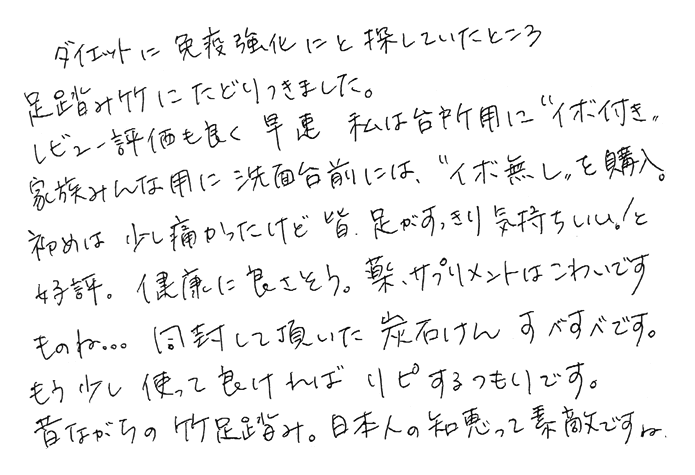 ダイエットに 免疫強化にと 探していたところ
足踏み竹にたどりつきました。
レビュー評価も良く 早速 私は台所用に"イボ付き"
家族みんな用に洗面台前には、"イボ無し"を購入。
初めは 少し痛かったけど 皆、足がすっきり 気持ちいい!と
好評。健康に良さそう。薬、サプリメントはこわいです
ものね… 同封して頂いた 炭石けん すべすべです。
もう少し 使って良ければ リピするつもりです。
昔ながらの 竹足踏み。日本人の知恵って素敵ですね.